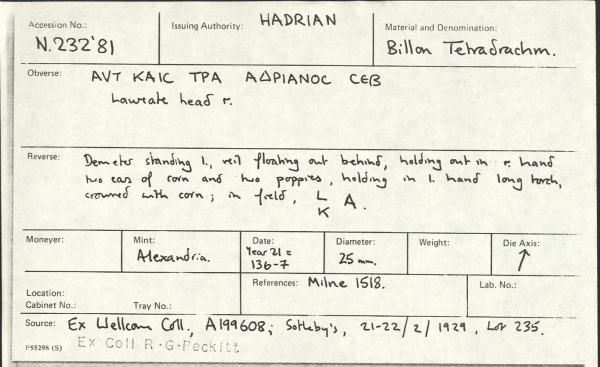 Accession No.: N.232'81
Issuing Authority: HADRIAN
Material and Denomination: Billon Tetradrachm.
Obverse: ΑVΤ ΚΑΙС ΤΡΑ ΑΔΡΙΑΝΟС СЄΒ
Laureate head r.
Reverse: Demeter standing l., veil floating out behind, holding out in r. hand
two ears of corn and two poppies, holding in l. hand long torch,
crowned with corn; in field, L A.
K
Moneyer:
Mint: Alexandria.
Date: Year 21 =
136-7
Diameter: 25 mm.
Weight:
Die Axis: ↑
Location:
Cabinet No.: Tray No.:
References: Milne 1518.
Lab. No.:
Source: Ex Wellcom Coll., A199608; Sotheby's, 21-22/2/1929, Lot 235.
P55298 (S) Ex Coll R·G·Peckitt